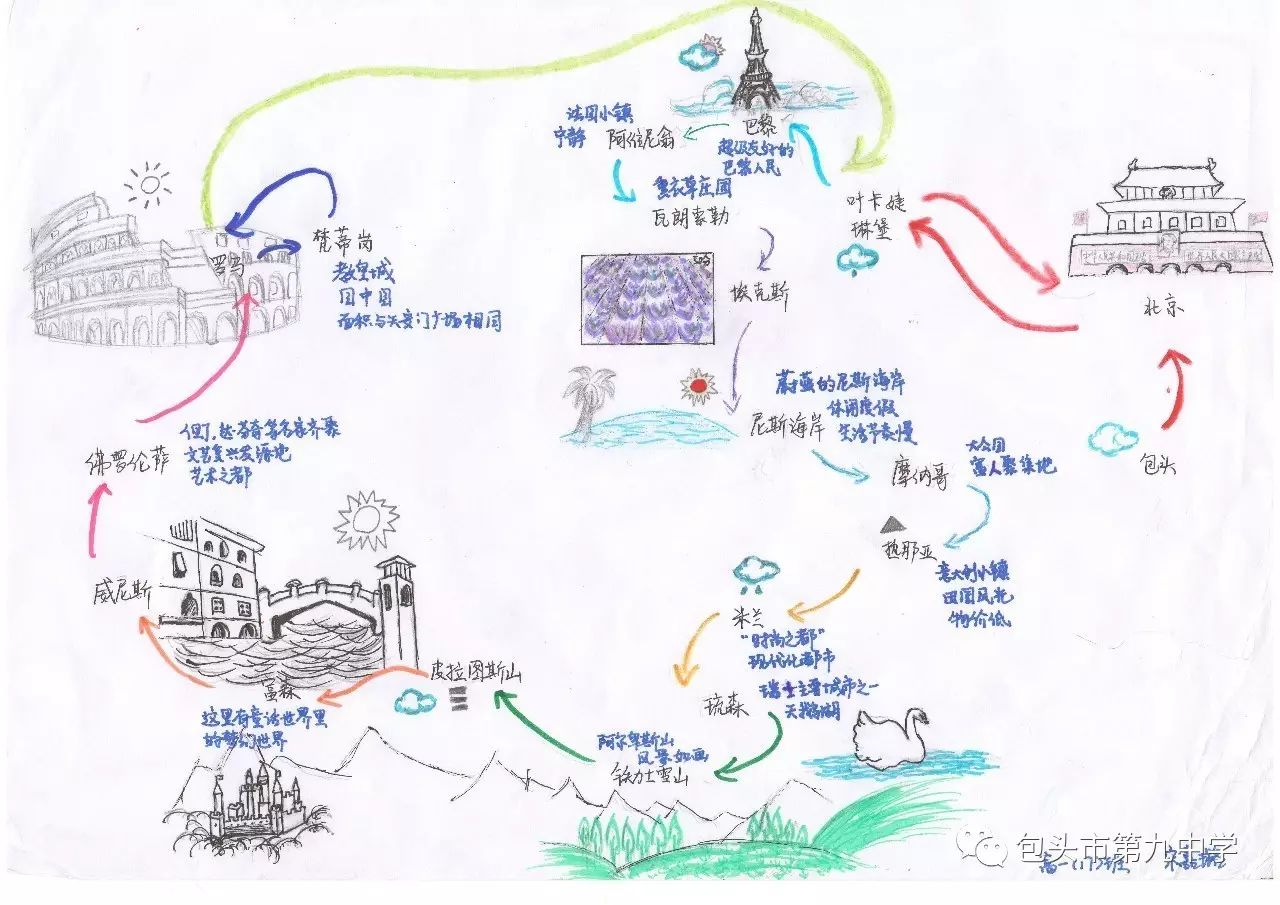 法国小镇
宁静
阿维尼翁
巴黎
超级友好的
巴黎人民
薰衣草庄园
瓦朗索勒
叶卡婕
琳堡
北京
包头
罗马
梵蒂岗
教皇城
国中国
面积与天安门广场相同
埃克斯
蔚蓝的尼斯海岸
休闲度假
生活节奏慢
尼斯海岸
摩纳哥
大公国
富人聚集地
热那亚
意大利小镇
田园风光
物价低
米兰
"时尚之都"
现代化都市
琉森
瑞士主要城市之一
天鹅湖
阿尔卑斯山
风景如画
铁力士雪山
皮拉图斯山
富森
这里有童话世界里
的梦幻世界
威尼斯
佛罗伦萨
但丁、达·芬奇等名家齐聚
文艺复兴发源地
艺术之都
包头市第九中学
高一(17)班